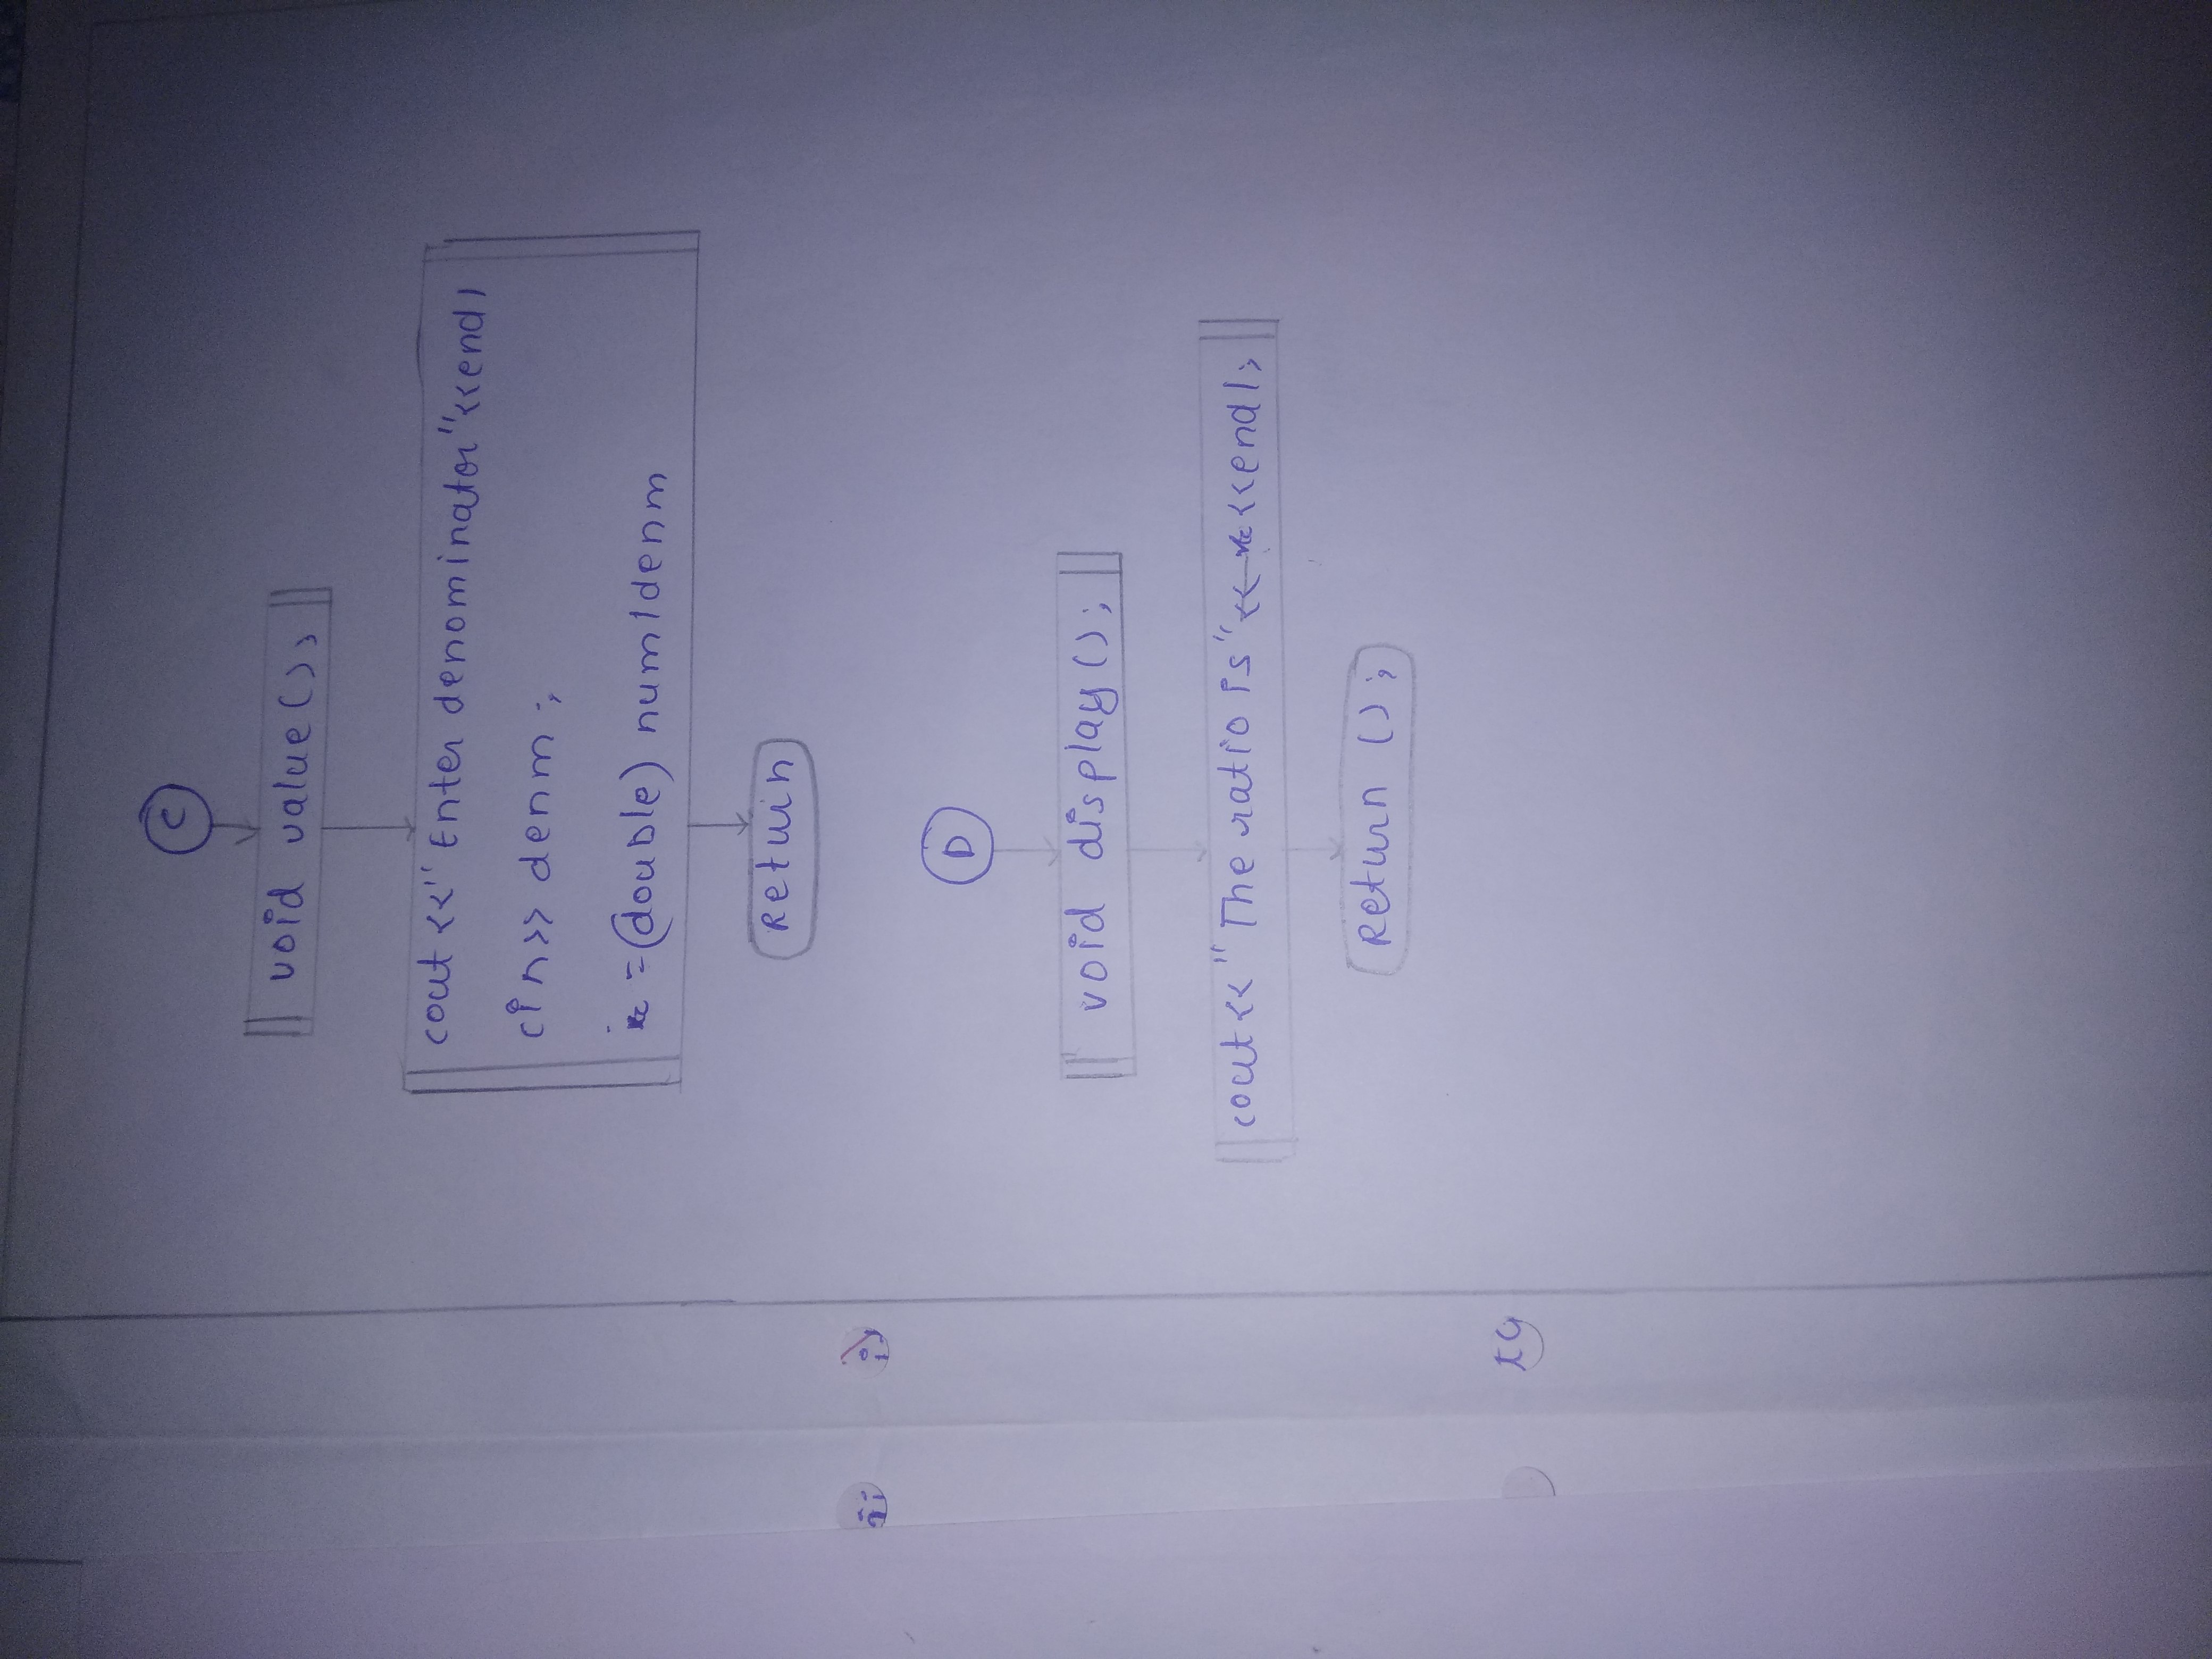 C
void value();
cout<<"Enter denominator"<<endl
cin>> denm ;
=(double) num/denm
Return
D
void display();
cout<<"The ratio is"<< <<endl;
Return ();